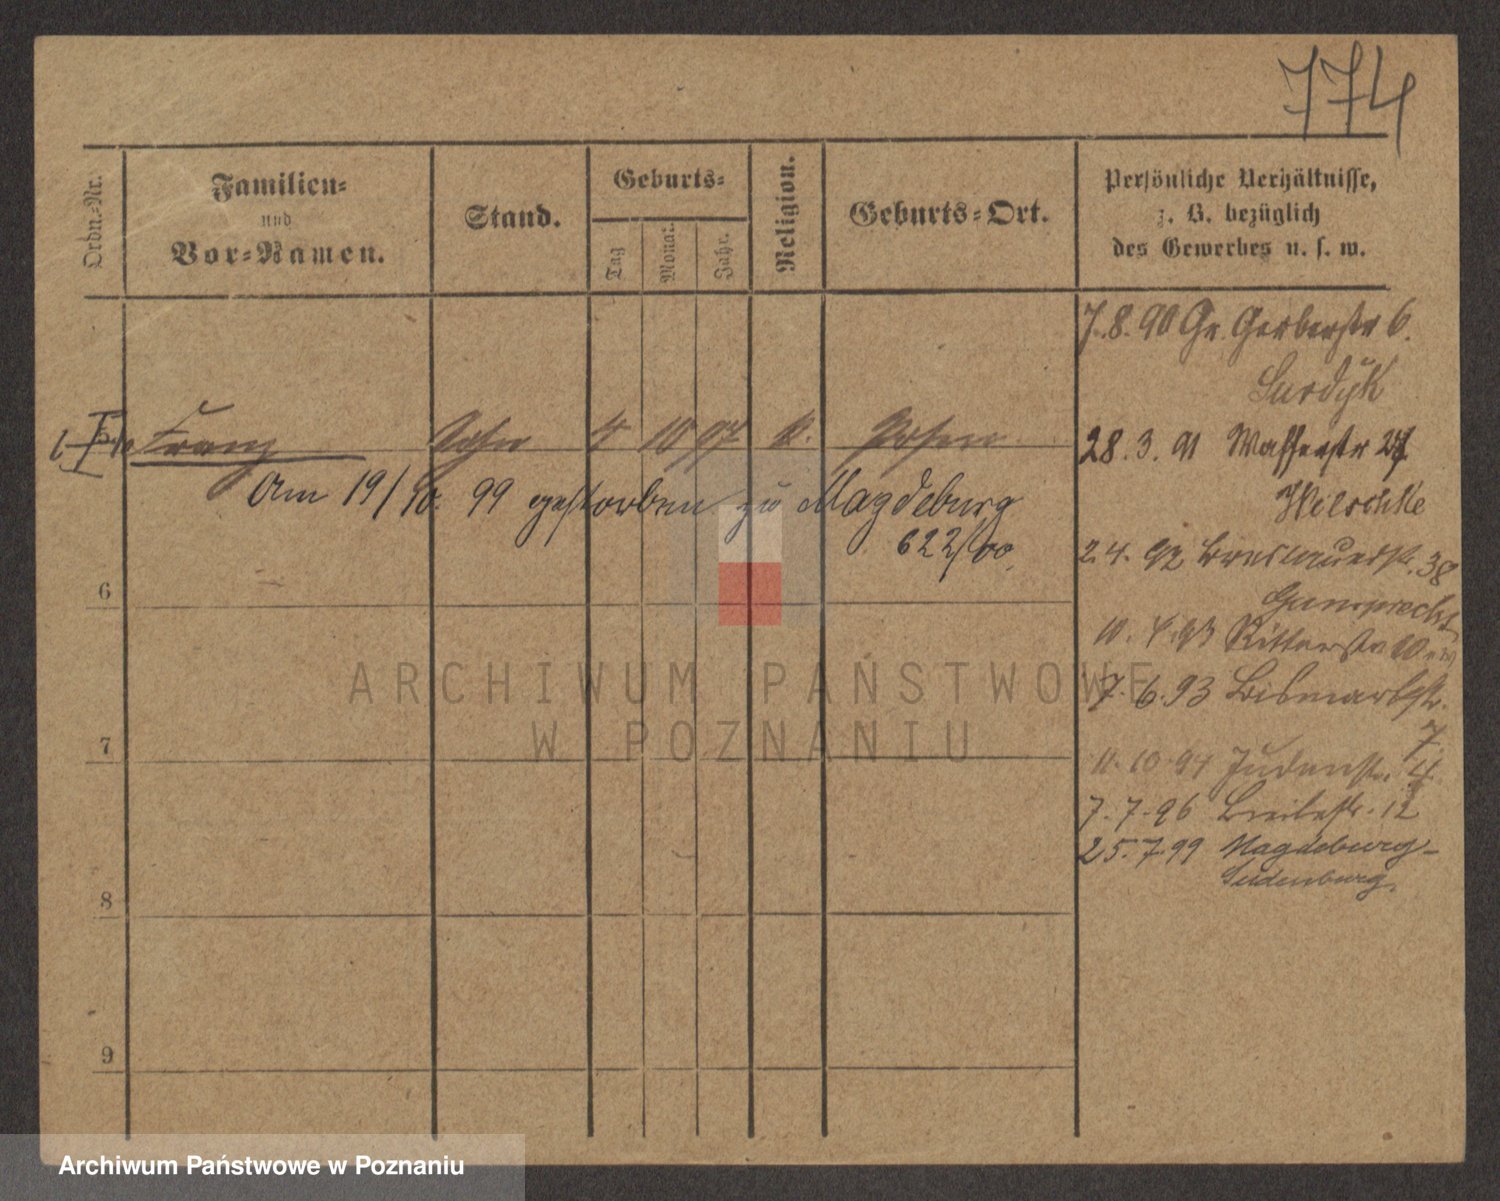 774
Ordn.-Nr.
Familien-
und
Vor-Namen.
Stand.
Geburts-
Tag
Monat
Jahr.
Religion.
Geburts-Ort.
Persönliche Verhältnisse,
z. B. bezüglich
des Gewerbes u. s. w.
7.8.90 Gr. Gerberstr 6.
Surdyk
5 Franz Sohn 4 10 97 k. Posen
28.3.91 Wasserstr 27
Am 19/10. 99 gestorben zu Magdeburg
622/00.
2.4.92 Breslauerstr. 38
Gumprecht
6
10.4.93 Ritterstr 10
7.6.93 Bismarkstr.
7
7
11.10.94 Judenstr. 4.
7.7.96 Breitestr. 12
25.7.99 Magdeburg-
Sudenburg.
8
9
ARCHIWUM PAŃSTWOWE
W POZNANIU
Archiwum Państwowe w Poznaniu